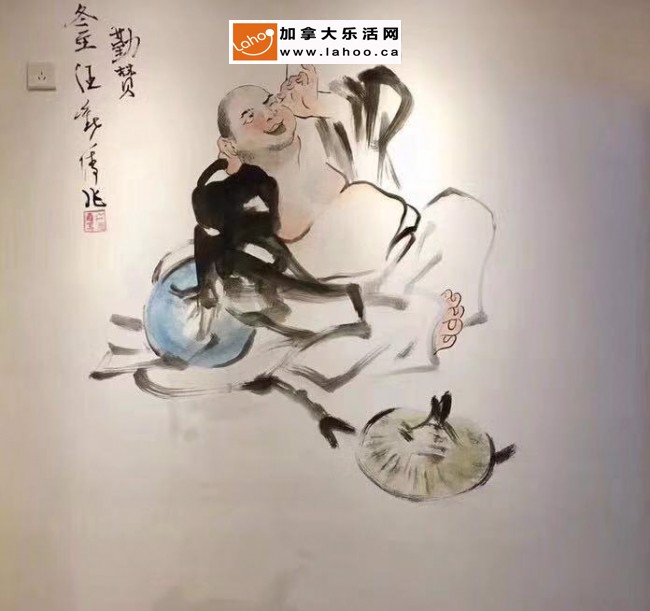 Lahoo
加拿大乐活网
www.lahoo.ca
勤赞
冬至汪